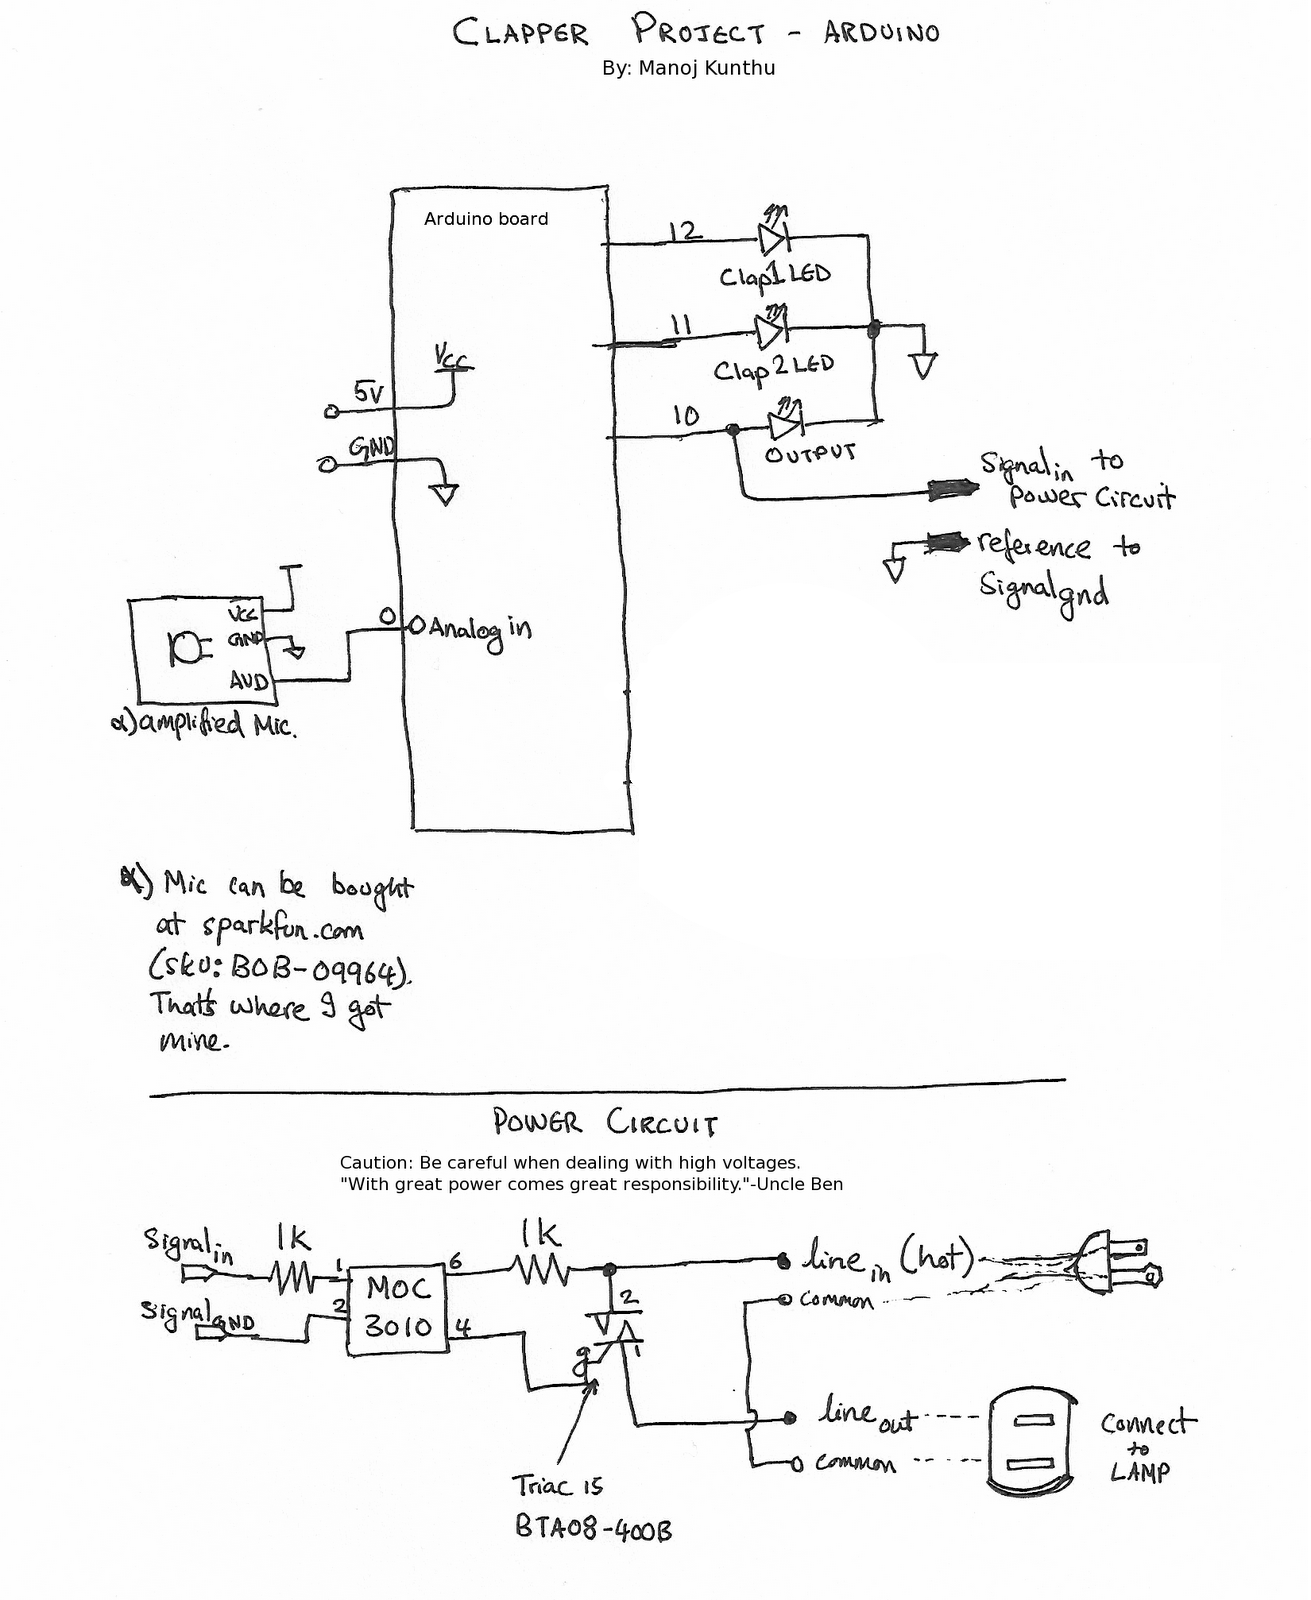 CLAPPER PROJECT - ARDUINO
By: Manoj Kunthu
Arduino board
12
Clap1 LED
11
Clap 2 LED
10
OUTPUT
VCC
5V
GND
Signal in to
Power Circuit
reference to
Signal gnd
VCC
GND
AUD
α) amplified Mic.
0
Analog in
α) Mic can be bought
at sparkfun.com
(sku: BOB-09964).
That's where I got
mine.
POWER CIRCUIT
Caution: Be careful when dealing with high voltages.
"With great power comes great responsibility."-Uncle Ben
Signal in
1K
1
Signal GND
2
MOC
3010
6
4
1K
2
g
1
line in (hot)
common
line out
common
Connect
to
LAMP
Triac is
BTA08-400B